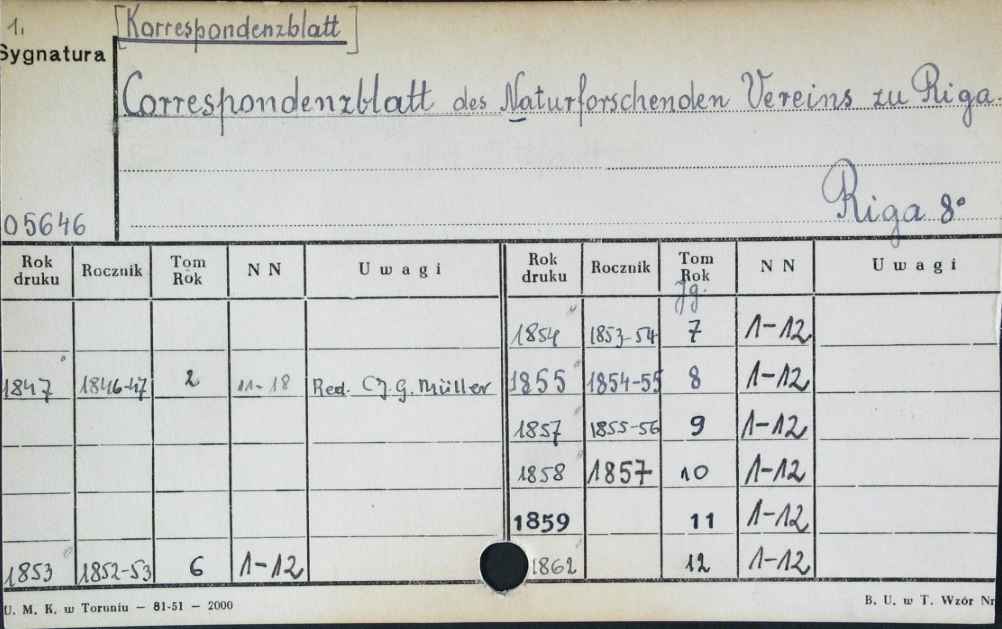 1.
[Korrespondenzblatt]
Sygnatura
Correspondenzblatt des Naturforschenden Vereins zu Riga.
Riga 8°
05646
Rok druku Rocznik Tom Rok N N Uwagi Rok druku Rocznik Tom Rok N N Uwagi
Jg.
1854 1853-54 7 1-12
1847 1846-47 2 11-18 Red. C.J.G. Müller 1855 1854-55 8 1-12
1857 1855-56 9 1-12
1858 1857 10 1-12
1859 11 1-12
1853 1852-53 6 1-12 1862 12 1-12
U. M. K. w Toruniu — 81-51 — 2000 B. U. w T. Wzór Nr